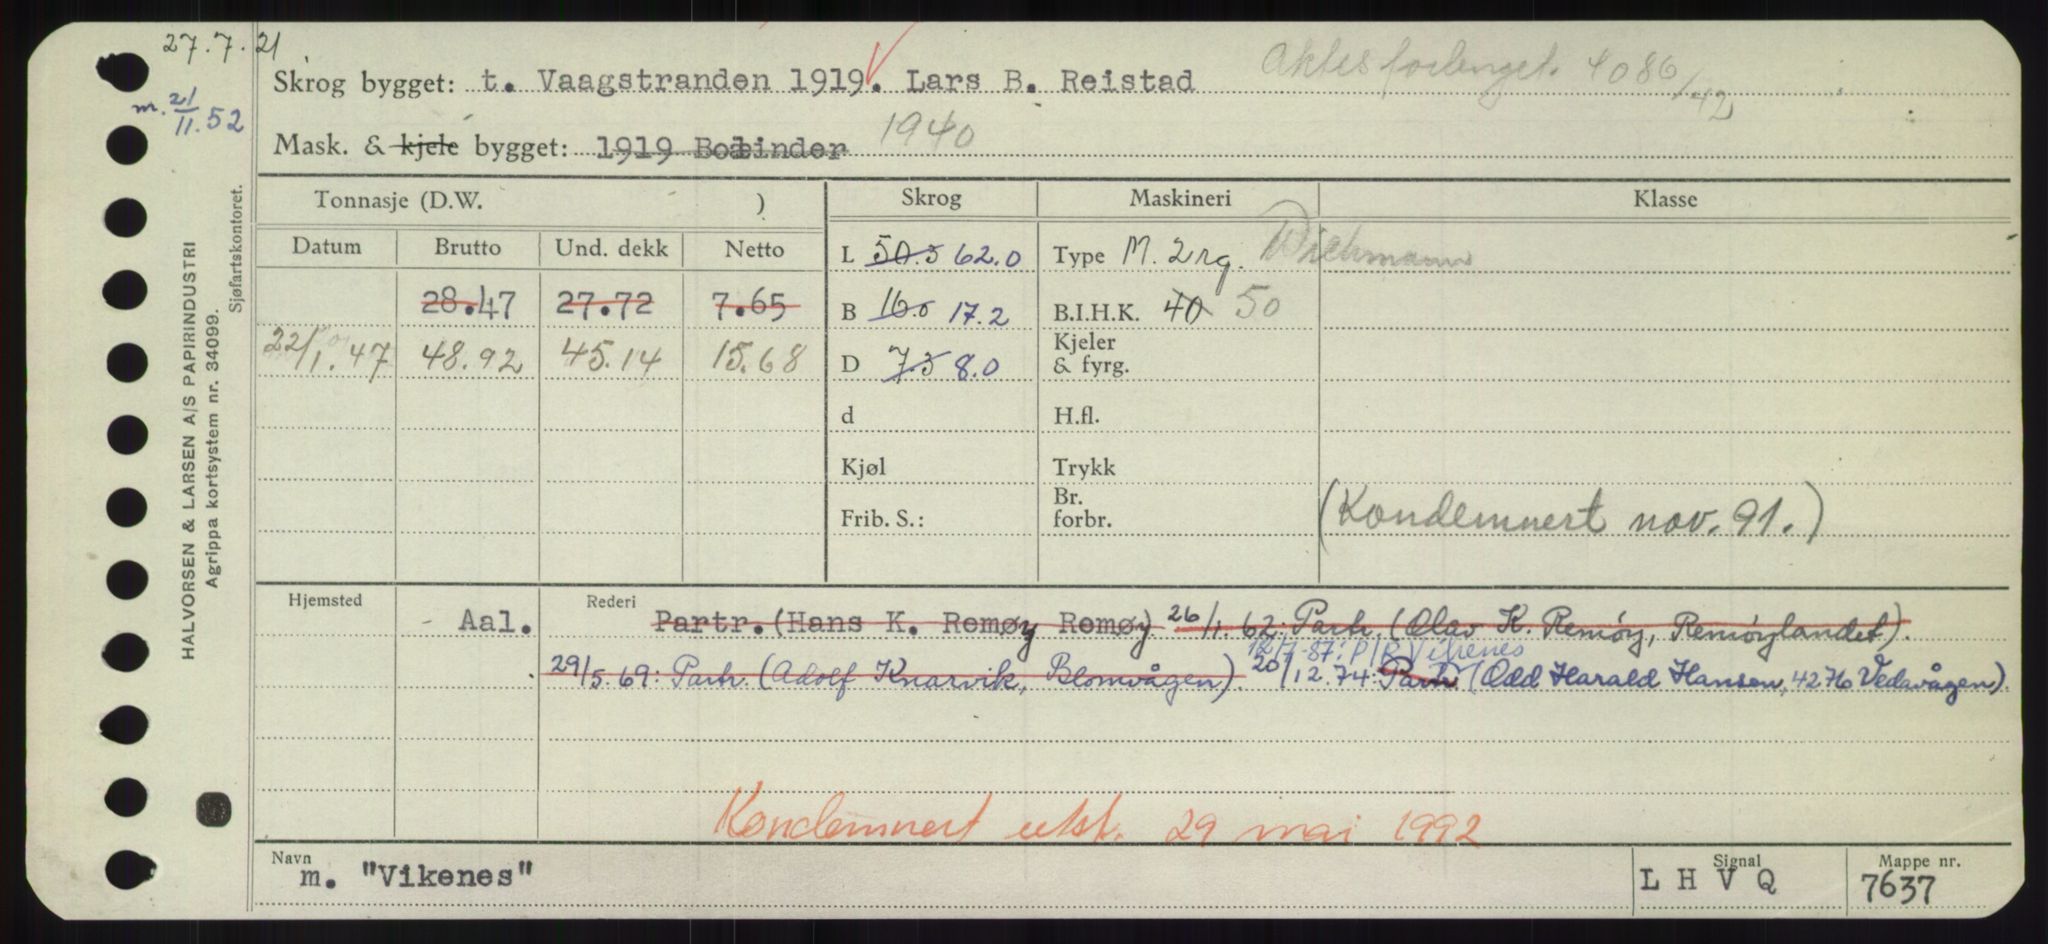 27.7.21
Skrog bygget: t. Vaagstranden 1919. Lars B. Reistad Aktes forlenget. 4086/42
m. 21/11.52
Mask. & kjele bygget: 1919 Bolinder 1940
Tonnasje (D.W. ) Skrog Maskineri Klasse
Datum Brutto Und. dekk Netto
L 50.5 62.0 Type M. 2 rg. Wichmann
28.47 27.72 7.65 B 16.0 17.2 B.I.H.K. 40 50
22/1.47 48.92 45.14 15.68 D 7.5 8.0 Kjeler & fyrg.
d H.fl.
Kjøl Trykk
Frib. S.: Br. forbr. (Kondemnert nov. 91.)
Hjemsted Rederi
Aal. Partr. (Hans K. Remøy Remøy) 26/1.62: Partr. (Olav K. Remøy, Remøylandet).
12/7-87: P/R Vikenes
29/5.69: Partr. (Adolf Knarvik, Blomvågen). 20/12.74: Partr (Odd Harald Hansen, 4276 Vedavågen).
Kondemnert utst. 29 mai 1992
Navn Signal Mappe nr.
m. "Vikenes" L H V Q 7637
HALVORSEN & LARSEN A/S PAPIRINDUSTRI
Agrippa kortsystem nr. 34099.
Sjøfartskontoret.